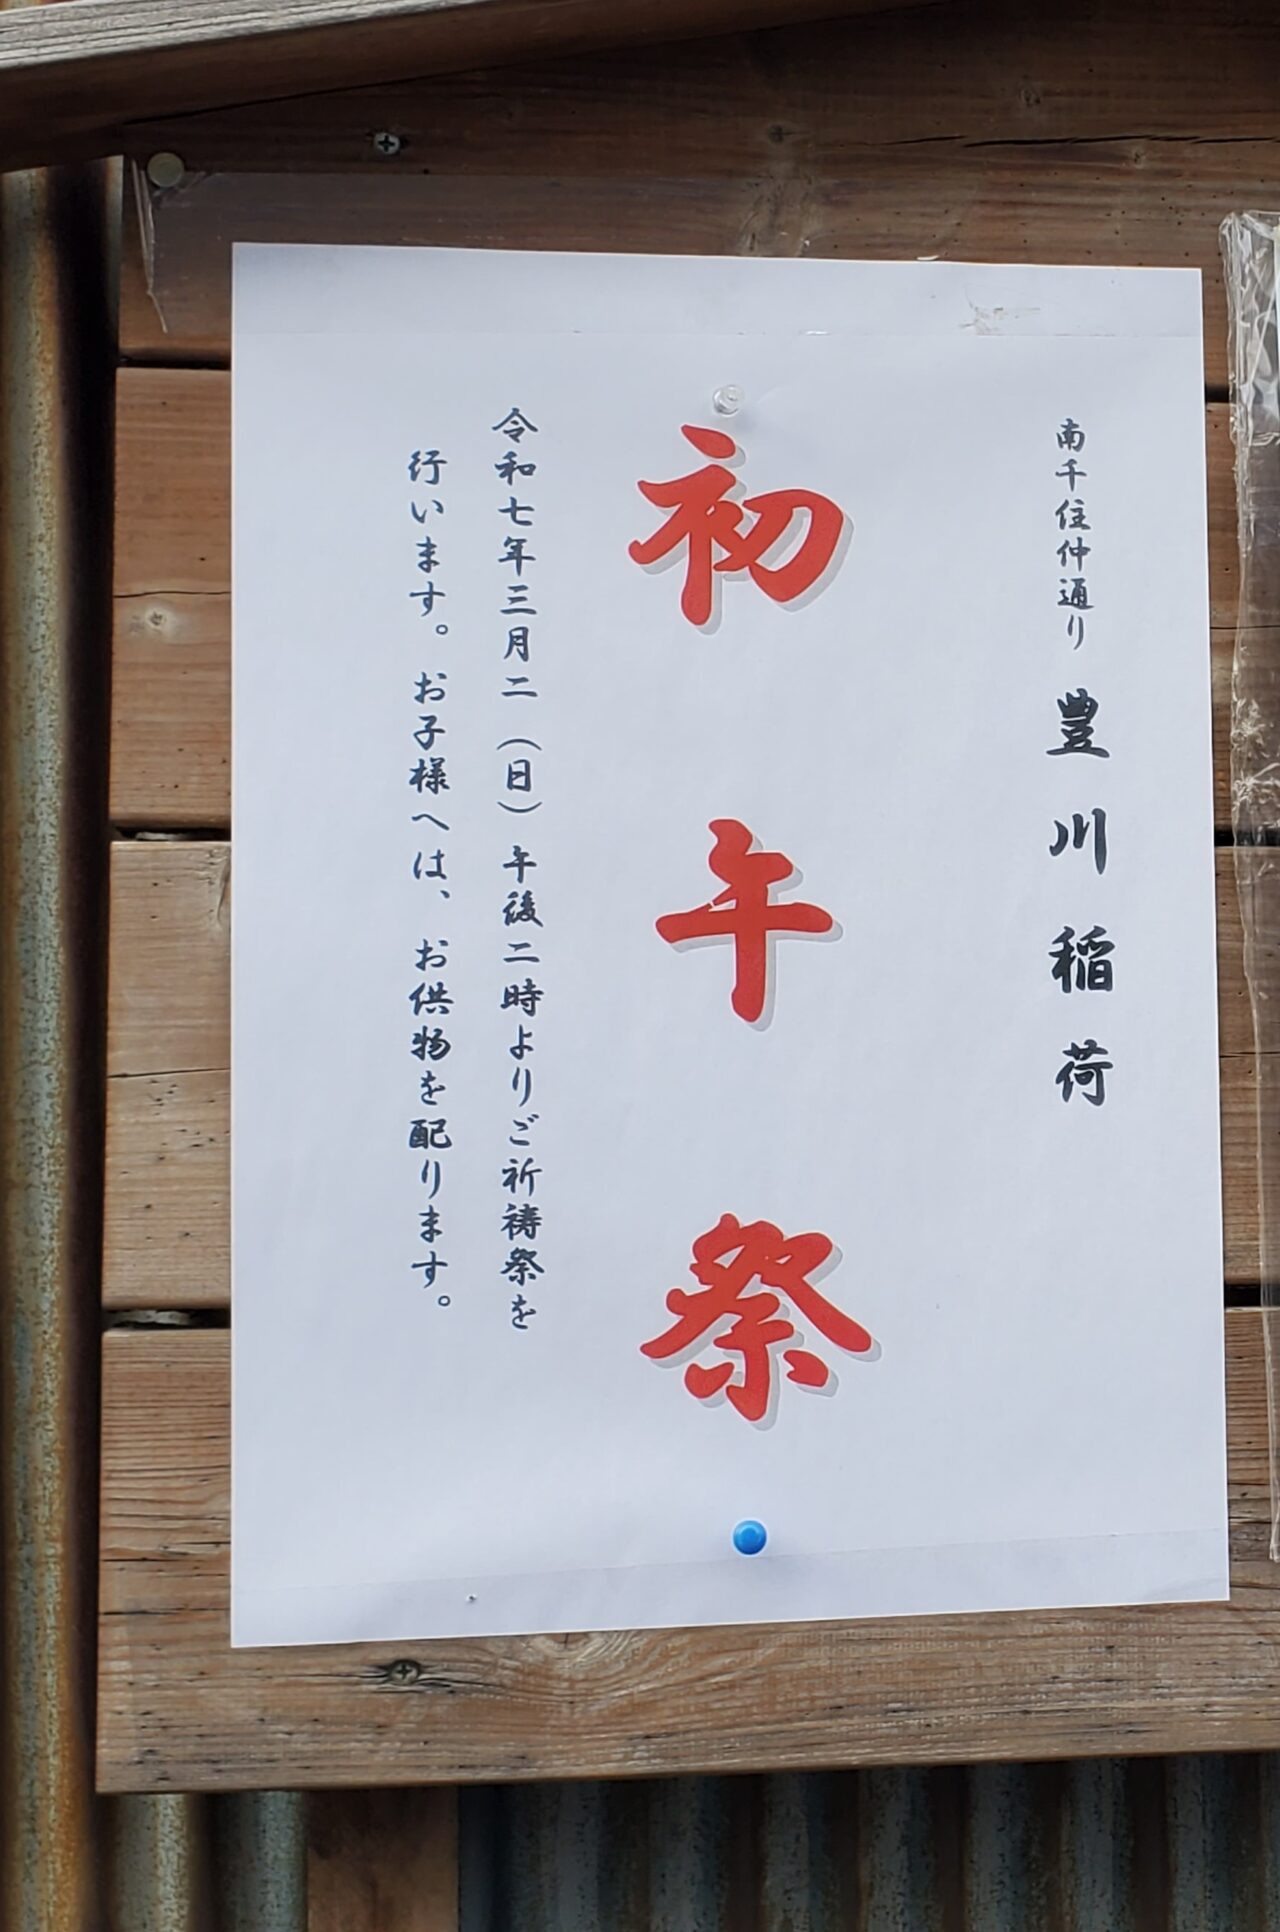 南千住仲通り 豊川稲荷
初午祭
令和七年三月二（日）午後二時よりご祈祷祭を
行います。お子様へは、お供物を配ります。